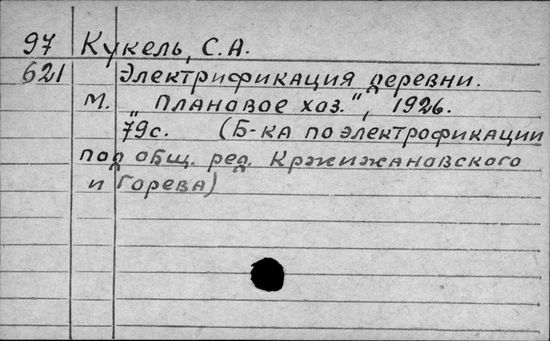 97 Кукель, С.А.
621 Электрификация деревни.
М. "Плановое хоз.", 1926.
79с. (Б-ка по электрофикации
под общ. ред. Кржижановского
и Горева)